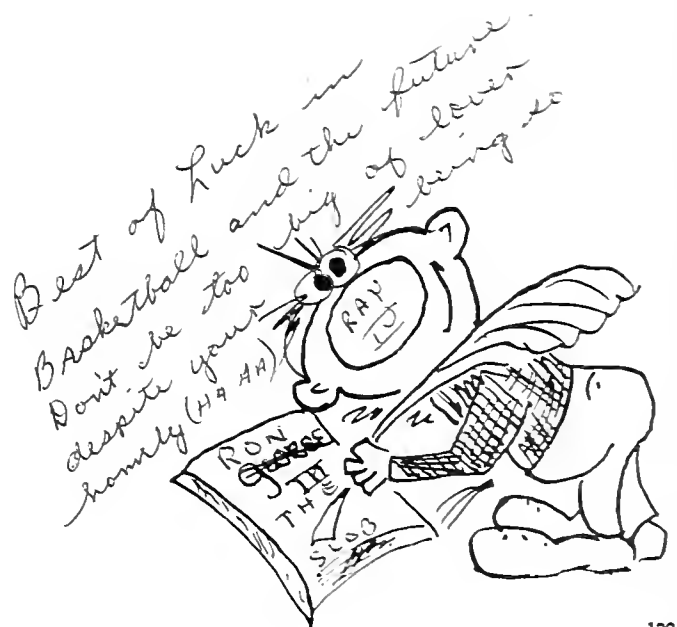 Best of Luck in
Basketball and the future.
Don't be too big of lover
despite your being so
homily (HA HA)
RAY
IV
RON
GEORGE
III
THE
SLOB